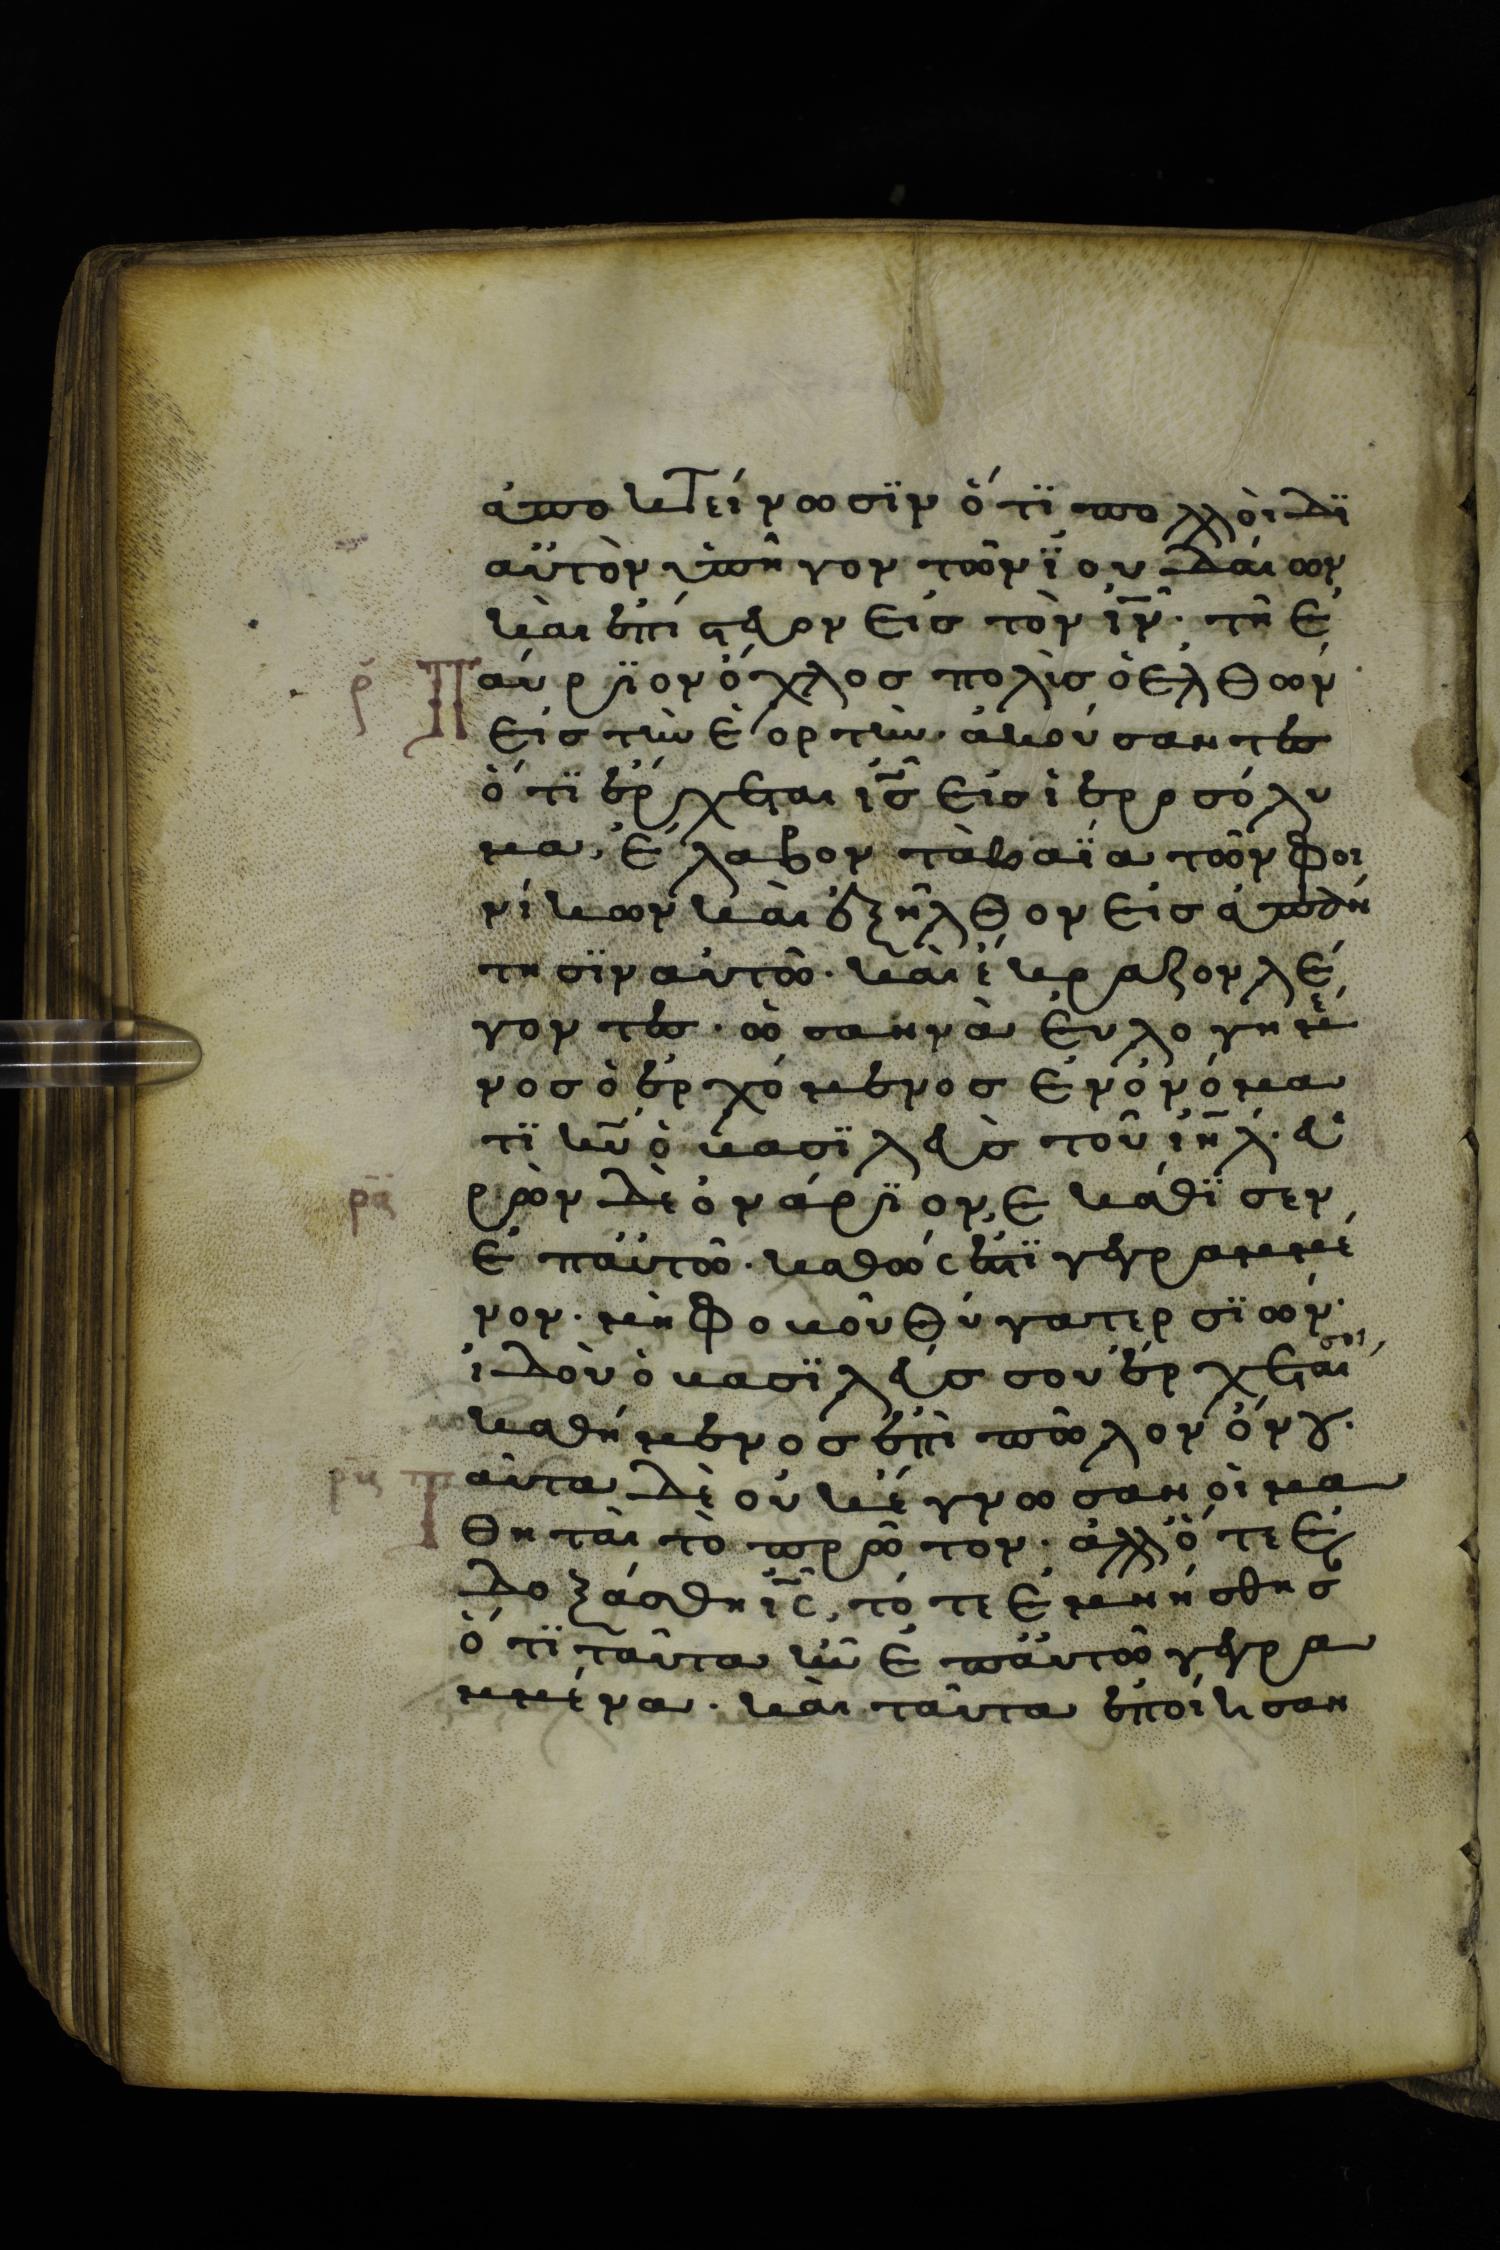 ἀποκτείνωσϊν ὅτϊ πολλὸι δϊ
αὐτὸν ὑπῆγον τῶν ϊουδάιων
κὰι ἐπίστευον εἰσ τὸν ἰν̅· τῆ ἐ
ρ̅ Παύρϊον ὄχλοσ πολὶσ ὁ ἐλθὼν
εἰσ τὴν ἑορτὴν· ἀκούσαντεσ
ὅτϊ ἔρχεται ἰσ̅ εἰσ ἱεροσόλυ
μα, ἔλαβον τὰ βαϊα τῶν φοι
νίκων κὰι ἐξῆλθον εἰσ ἀπάν
τησϊν αὐτῶ· κὰι ἔκραζον λέ
γοντεσ· ὡσαννὰ ἐυλογημέ
νοσ ὁ ἐρχόμενοσ ἐν ὀνόμα
τϊ κυ̅ ὁ βασϊλεὺσ τοῦ ἰη̅λ· εὑ
ρα̅ ρὼν δὲ ὀνάρϊον, ἐκαθϊσεν
ἐπ αὐτῶ· καθώσ ἐστϊ γεγραμμέ
νον· μὴ φοβοῦ θύγατερ σϊών·
ἰδοὺ ὁ βασϊλεύσ σου ἔρχεταί σοι,
καθήμενοσ ἐπὶ πῶλον ὄνου·
ρβ̅ Ταῦτα δὲ οὐκ ἔγνωσαν ὁι μα
θητὰι τὸ πρῶτον· ἀλλ ὅτε ἐ
δοξάσθη ἰσ̅, τότε ἐμνήσθησ
ὅτϊ ταῦτα ἦν ἐπ αὐτῶ γεγρα
μμένα· κὰι ταῦτα ἐποίησαν